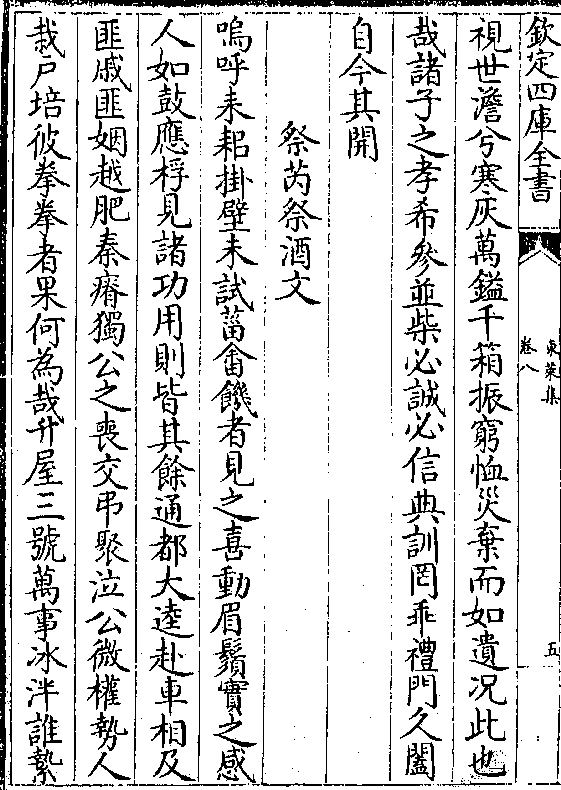 欽定四庫全書
東萊集
卷八
五
視世澹兮寒灰萬鎰千箱振窮恤災棄而如遺况此也
哉諸子之孝希參並柴必誠必信典訓罔乖禮門久闔
自今其開
祭芮祭酒文
嗚呼耒耜掛壁未試菑畬饑者見之喜動眉鬚實之感
人如鼓應桴見諸功用則皆其餘通都大逵赴車相及
匪戚匪姻越肥秦瘠獨公之喪交弔聚泣公微權勢人
栽戸培彼拳拳者果何為哉升屋三號萬事冰泮誰縶